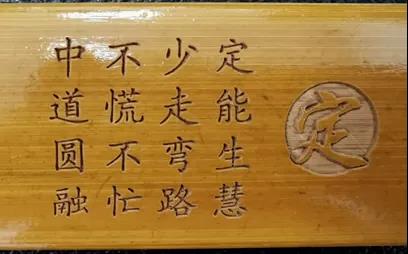 定
定能生慧
少走弯路
不慌不忙
中道圆融